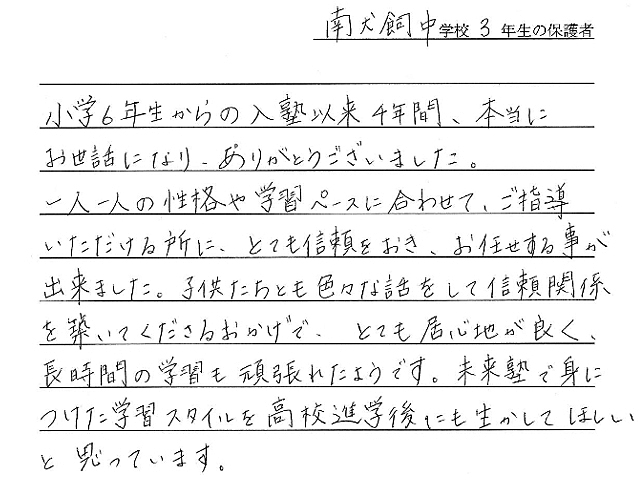 南犬飼中学校 3 年生の保護者
小学6年生からの入塾以来4年間、本当に
お世話になり、ありがとうございました。
一人一人の性格や学習ペースに合わせて、ご指導
いただける所に、とても信頼をおき、お任せする事が
出来ました。子供たちとも色々な話をして信頼関係
を築いてくださるおかげで、とても居心地が良く、
長時間の学習も頑張れたようです。未来塾で身に
つけた学習スタイルを高校進学後にも生かしてほしい
と思っています。